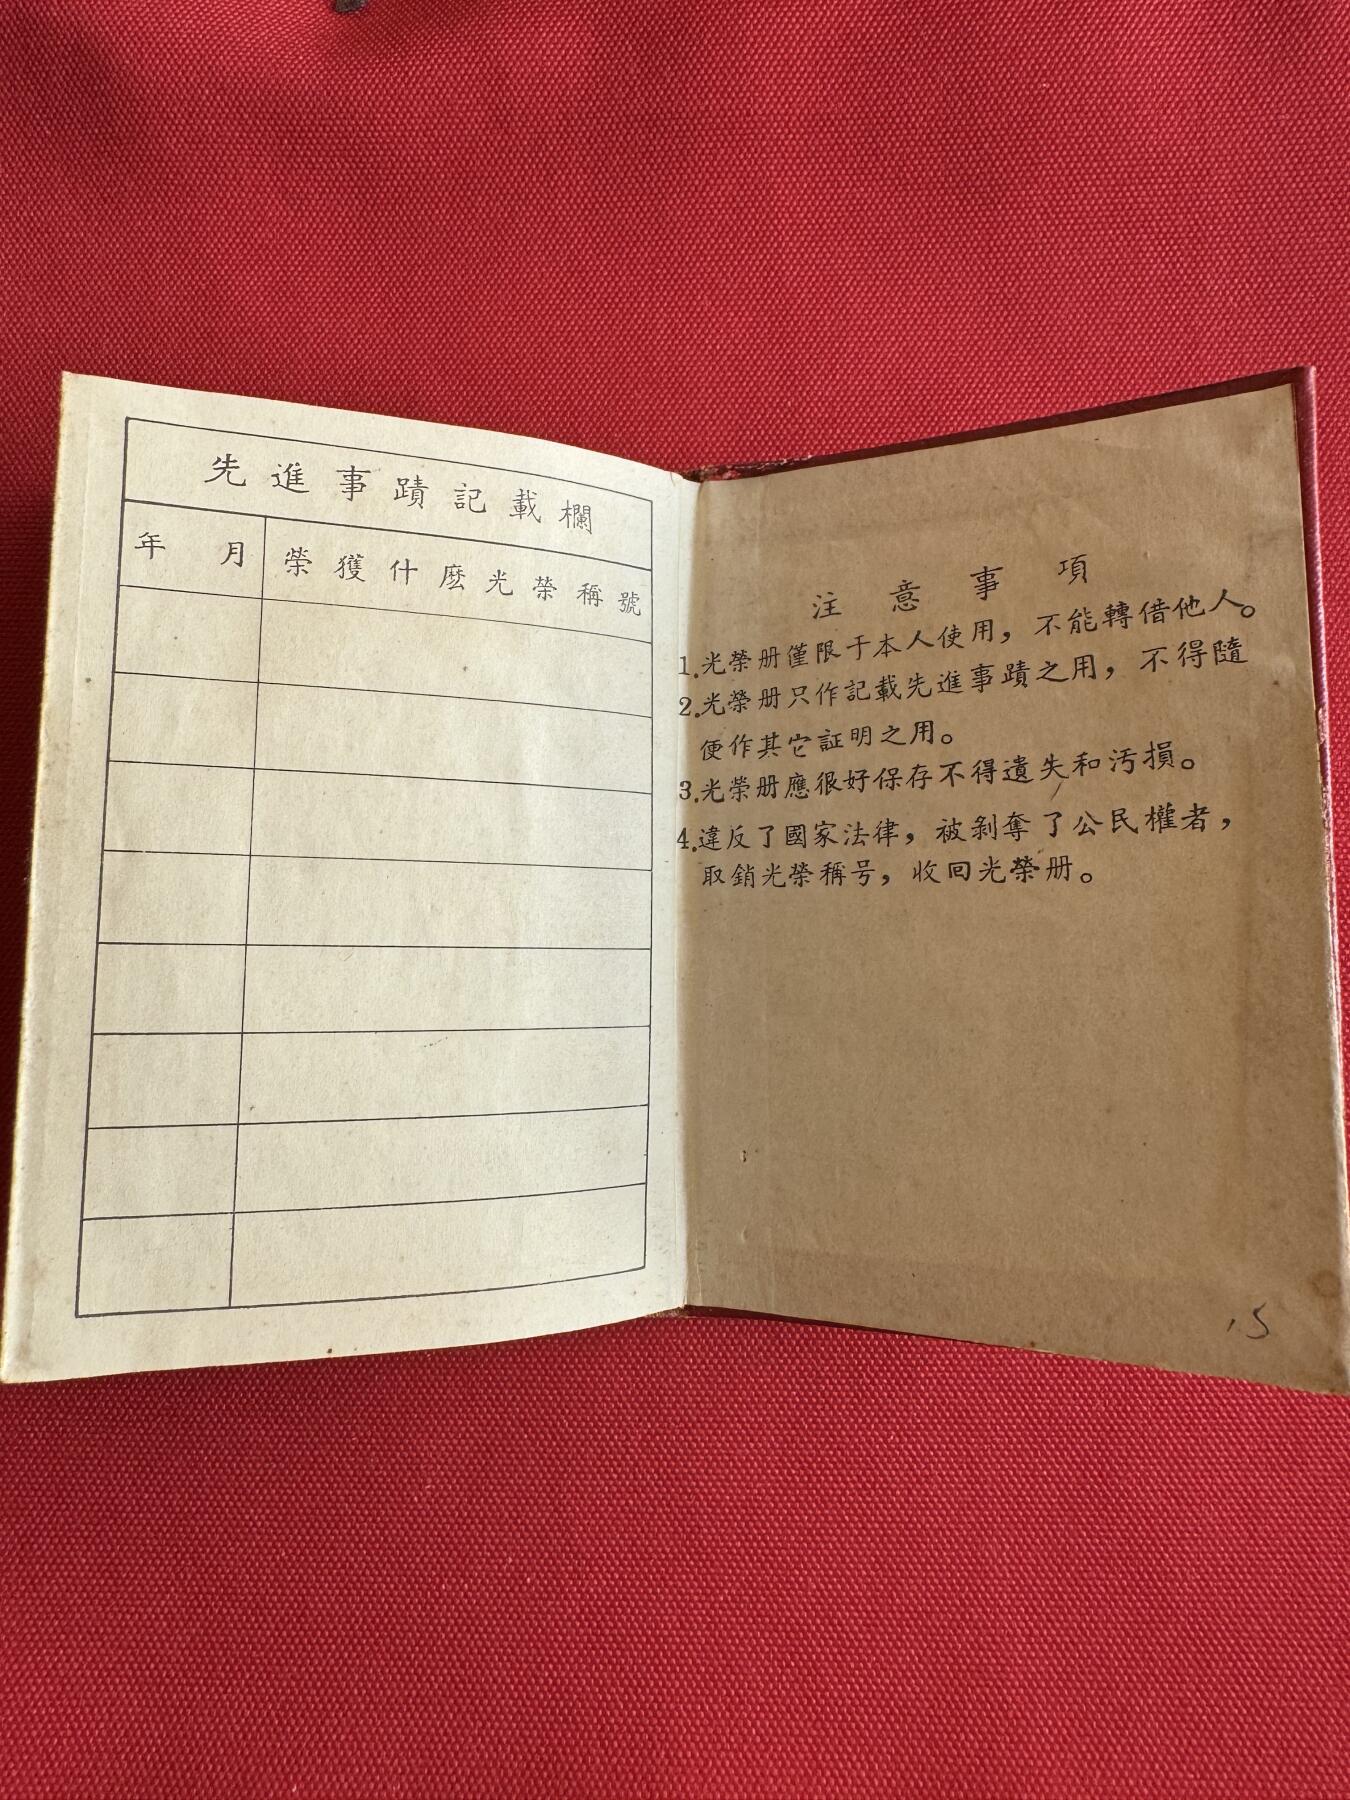 先進事蹟記載欄
年 月 榮獲什麽光榮稱號
注意事項
1.光榮册僅限于本人使用，不能轉借他人。
2.光榮册只作記載先進事蹟之用，不得隨
便作其它証明之用。
3.光榮册應很好保存不得遺失和汚損。
4.違反了國家法律，被剝奪了公民權者，
取銷光榮稱号，收回光榮册。
.5